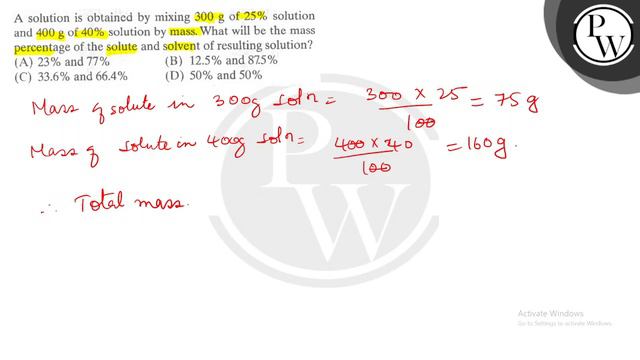 A solution is obtained by mixing 300 g of 25% solution
and 400 g of 40% solution by mass. What will be the mass
percentage of the solute and solvent of resulting solution?
(A) 23% and 77% (B) 12.5% and 87.5%
(C) 33.6% and 66.4% (D) 50% and 50%
Mass of solute in 300g soln = 300 × 25 / 100 = 75 g
Mass of solute in 400g soln = 400 × 40 / 100 = 160g.
∴ Total mass.
PW
PW
Activate Windows
Go to Settings to activate Windows.